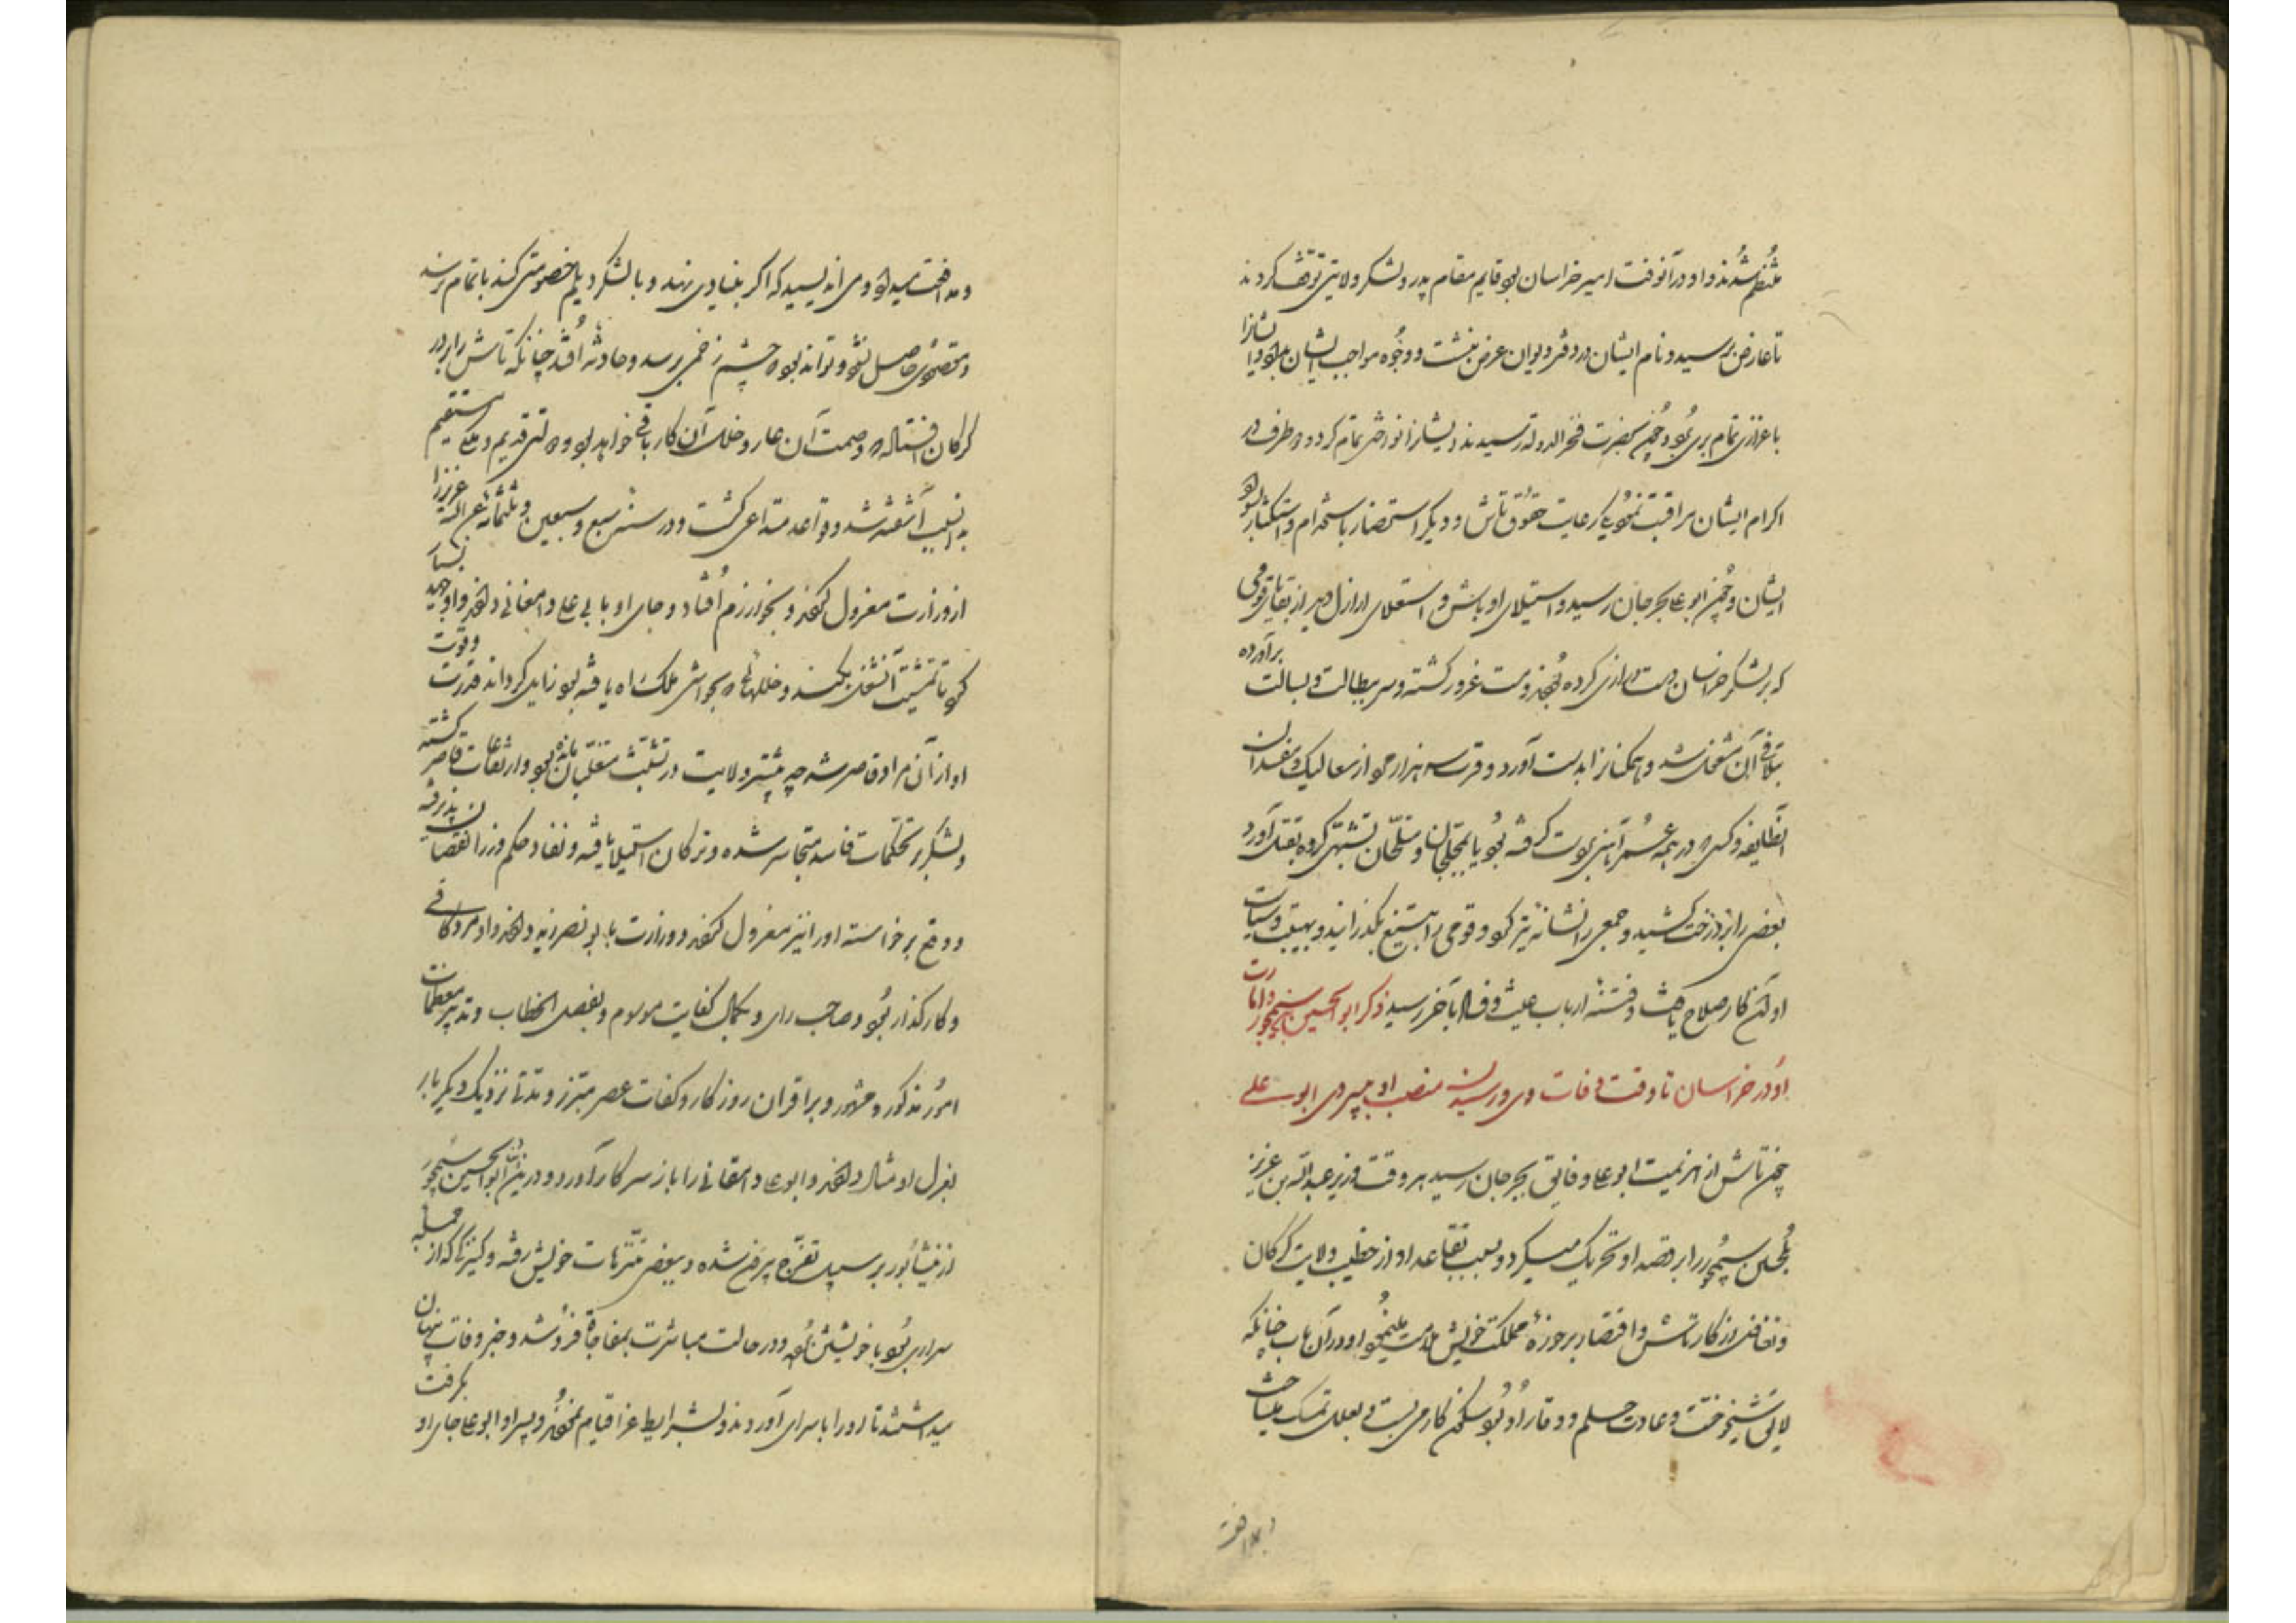 منتظم شدند و او در آنوقت امیر خراسان بود قایم مقام پدر و لشکر ولایتی توقف کردند
تا عارض برسید و نام ایشان در دفتر دیوان عرض بنشست و وجوه مواجب ایشان بداد و ایشانرا
باعزازی تمام بری بود و چون بحضرت فخر الدوله رسیدند ایشانرا نوازش تمام کرد و در طرف در
اکرام ایشان مراقبت نمود یکی رعایت حقوق تاش و دیگر استحضار باستخدام و استکثار بسواد
ایشان و چون ابو علی بجرجان رسید و استیلای اوباش و استعلای اراذل دید از بقایای قومی
که بر لشکر خراسان دست درازی کرده بودند و مست غرور گشته و سر ببطالت و بسالت برآورده
بتلافی آن مشغول شد و همکنانرا بدست آورد و قرب سه هزار مرد از صعالیک و مفسدان
آنطایفه و کسی که در همه عمر آهنی بدست گرفته بود یا بمحلجان و مسلحان تشبهی کرده بقتل آورد
بعضی را بر درخت کشید و جمعی را نشانه تیر کرد و قومی را بتیغ بگذرانید و بهیبت و سیاست
او آن کار صلاح یافت و فتنه ارباب عیث و فساد بآخر رسید ذکر ابو الحسین سیمجور و امارت
او در خراسان تا وقت وفات وی و رسیدن منصب او بپسر وی ابو علی
چون تاش از هزیمت ابو علی و فایق بجرجان رسید هر وقت وزیر عبد الله بن عزیز
بلحسن سیمجور را بر قصد او تحریک میکرد و بسبب تقاعد او از خطب ولایت گرگان
و تغافل از کار تاش و اقتصار بر حوزه مملکت خویش ملامت مینمود او در آن باب چنانکه
لایق شیخوخت و عادت حلم و وقار او بود سکون کار می بست و بعلل تمسک میساخت
و مدافعت
و مدافعت میداد و می اندیشید که اگر بنیادی نهد و با لشکر دیلم خصومتی کند باتمام نرسد
و مقصودی حاصل نشود و تواند بود که چشم زخمی برسد و حادثه افتد چنانکه تاش را بر در
گرگان افتاد و وصمت آن عار و خلل آن کار باقی خواهد بود و دولتی قدیم و ملکی مستقیم
بدان سبب آشفته شد و قواعد متداعی گشت و در سنه سبع و سبعین و ثلثمائه عبد الله عزیز را
از وزارت معزول کردند و بخوارزم افتاد و جای او بابی علی دامغانی دادند و او جهد بسیار
کرد تا تمشیت آن شغل بکند و خللها که بحواشی ملک راه یافته بود زایل گرداند قدرت و قوت
او از آن مراد قاصر شد چه بیشتر ولایت در تشبث متغلبان مانده بود و ارتفاعات قاصر گشته
و لشکر بر تحکمات فاسد متجاسر شده و ترکان استیلا یافته و نفاذ حکم وزرا نقصان پذیرفته
و وقع برخاسته او را نیز معزول کردند و وزارت با ابو نصر زید دادند و او مرد کافی
و کارگذار بود و صاحب رای و بکمال کفایت موسوم و بفصل الخطاب و تدبیر معظمات
امور مذکور و مشهور و بر اقران روزگار و کفات عصر مبرز و مدتی نزدیک دیگر بار
بعزل او مثال دادند و ابو علی دامغانی را باز سر کار آوردند و درین مدت ابو الحسین سیمجور
از نیشابور بر سبیل تفرج بیرون شده و ببعضی متنزهات خویش رفته و کنیزکی که از جمله
سراری بود با خویشتن برده و در حالت مباشرت بمفاجاة فرو شد و خبر وفات پنهان
میداشتند تا او را با سرای آوردند و بشرایط عزا قیام نمودند و پسر او ابو علی جای او بگرفت